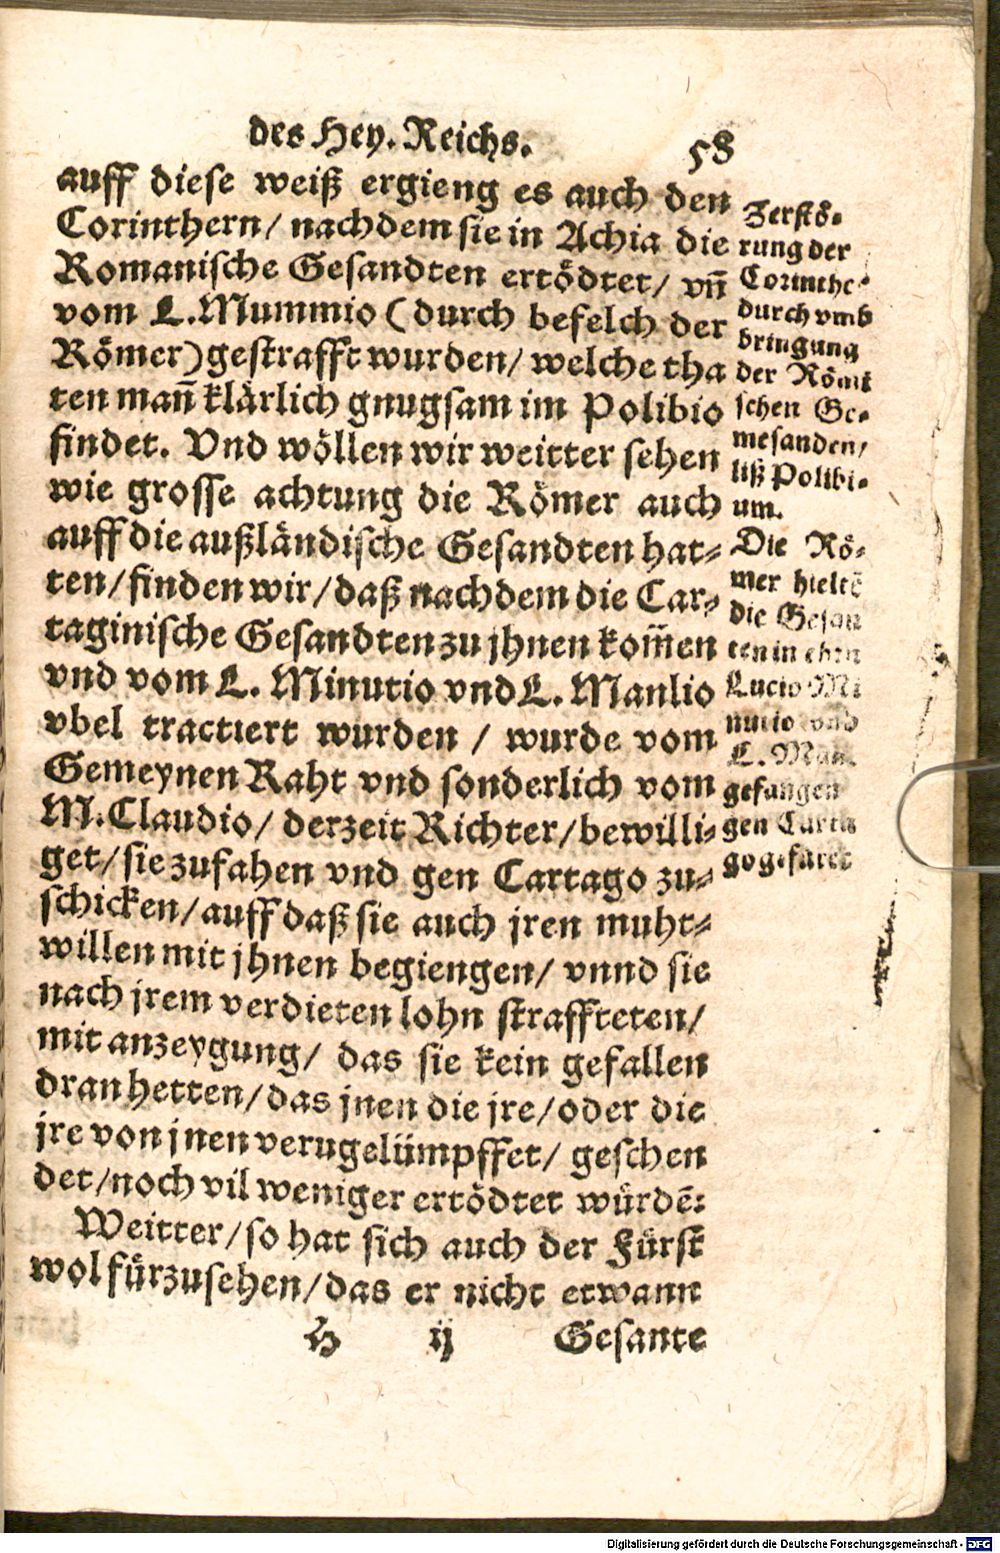 des Hey. Reichs. 58
auff diese weiß ergieng es auch den
Corinthern/ nachdem sie in Achia die
Romanische Gesandten ertödtet/ vñ
vom L. Mummio (durch befelch der
Römer) gestrafft wurden/ welche tha
ten mañ klärlich gnugsam im Polibio
findet. Vnd wöllen wir weitter sehen
wie grosse achtung die Römer auch
auff die außländische Gesandten hat⸗
ten/ finden wir/ daß nachdem die Car⸗
taginische Gesandten zu jhnen kom̃en
vnd vom L. Minutio vnd L. Manlio
vbel tractiert wurden / wurde vom
Gemeynen Raht vnd sonderlich vom
M. Claudio/ derzeit Richter/ bewilli⸗
get/ sie zufahen vnd gen Cartago zu⸗
schicken/ auff daß sie auch jren muht⸗
willen mit jhnen begiengen/ vnnd sie
nach jrem verdieten lohn straffteten/
mit anzeygung/ das sie kein gefallen
dran hetten/ das jnen die jre/ oder die
jre von jnen verugelümpffet/ geschen
det/ noch vil weniger ertödtet würdẽ:
Weitter/ so hat sich auch der Fürst
wol fürzusehen/ das er nicht etwann
H ij Gesante
Zerstö⸗
rung der
Corinthe⸗
durch vmb
bringung
der Römi
schen Ge⸗
mesanden/
liß Polibi⸗
um.
Die Rö⸗
mer hieltẽ
die Gesan
ten in ehrn
Lucio Mi
nutio vnd
L. Man
gefangen
gen Carta
go gefürt
Digitalisierung gefördert durch die Deutsche Forschungsgemeinschaft - DFG